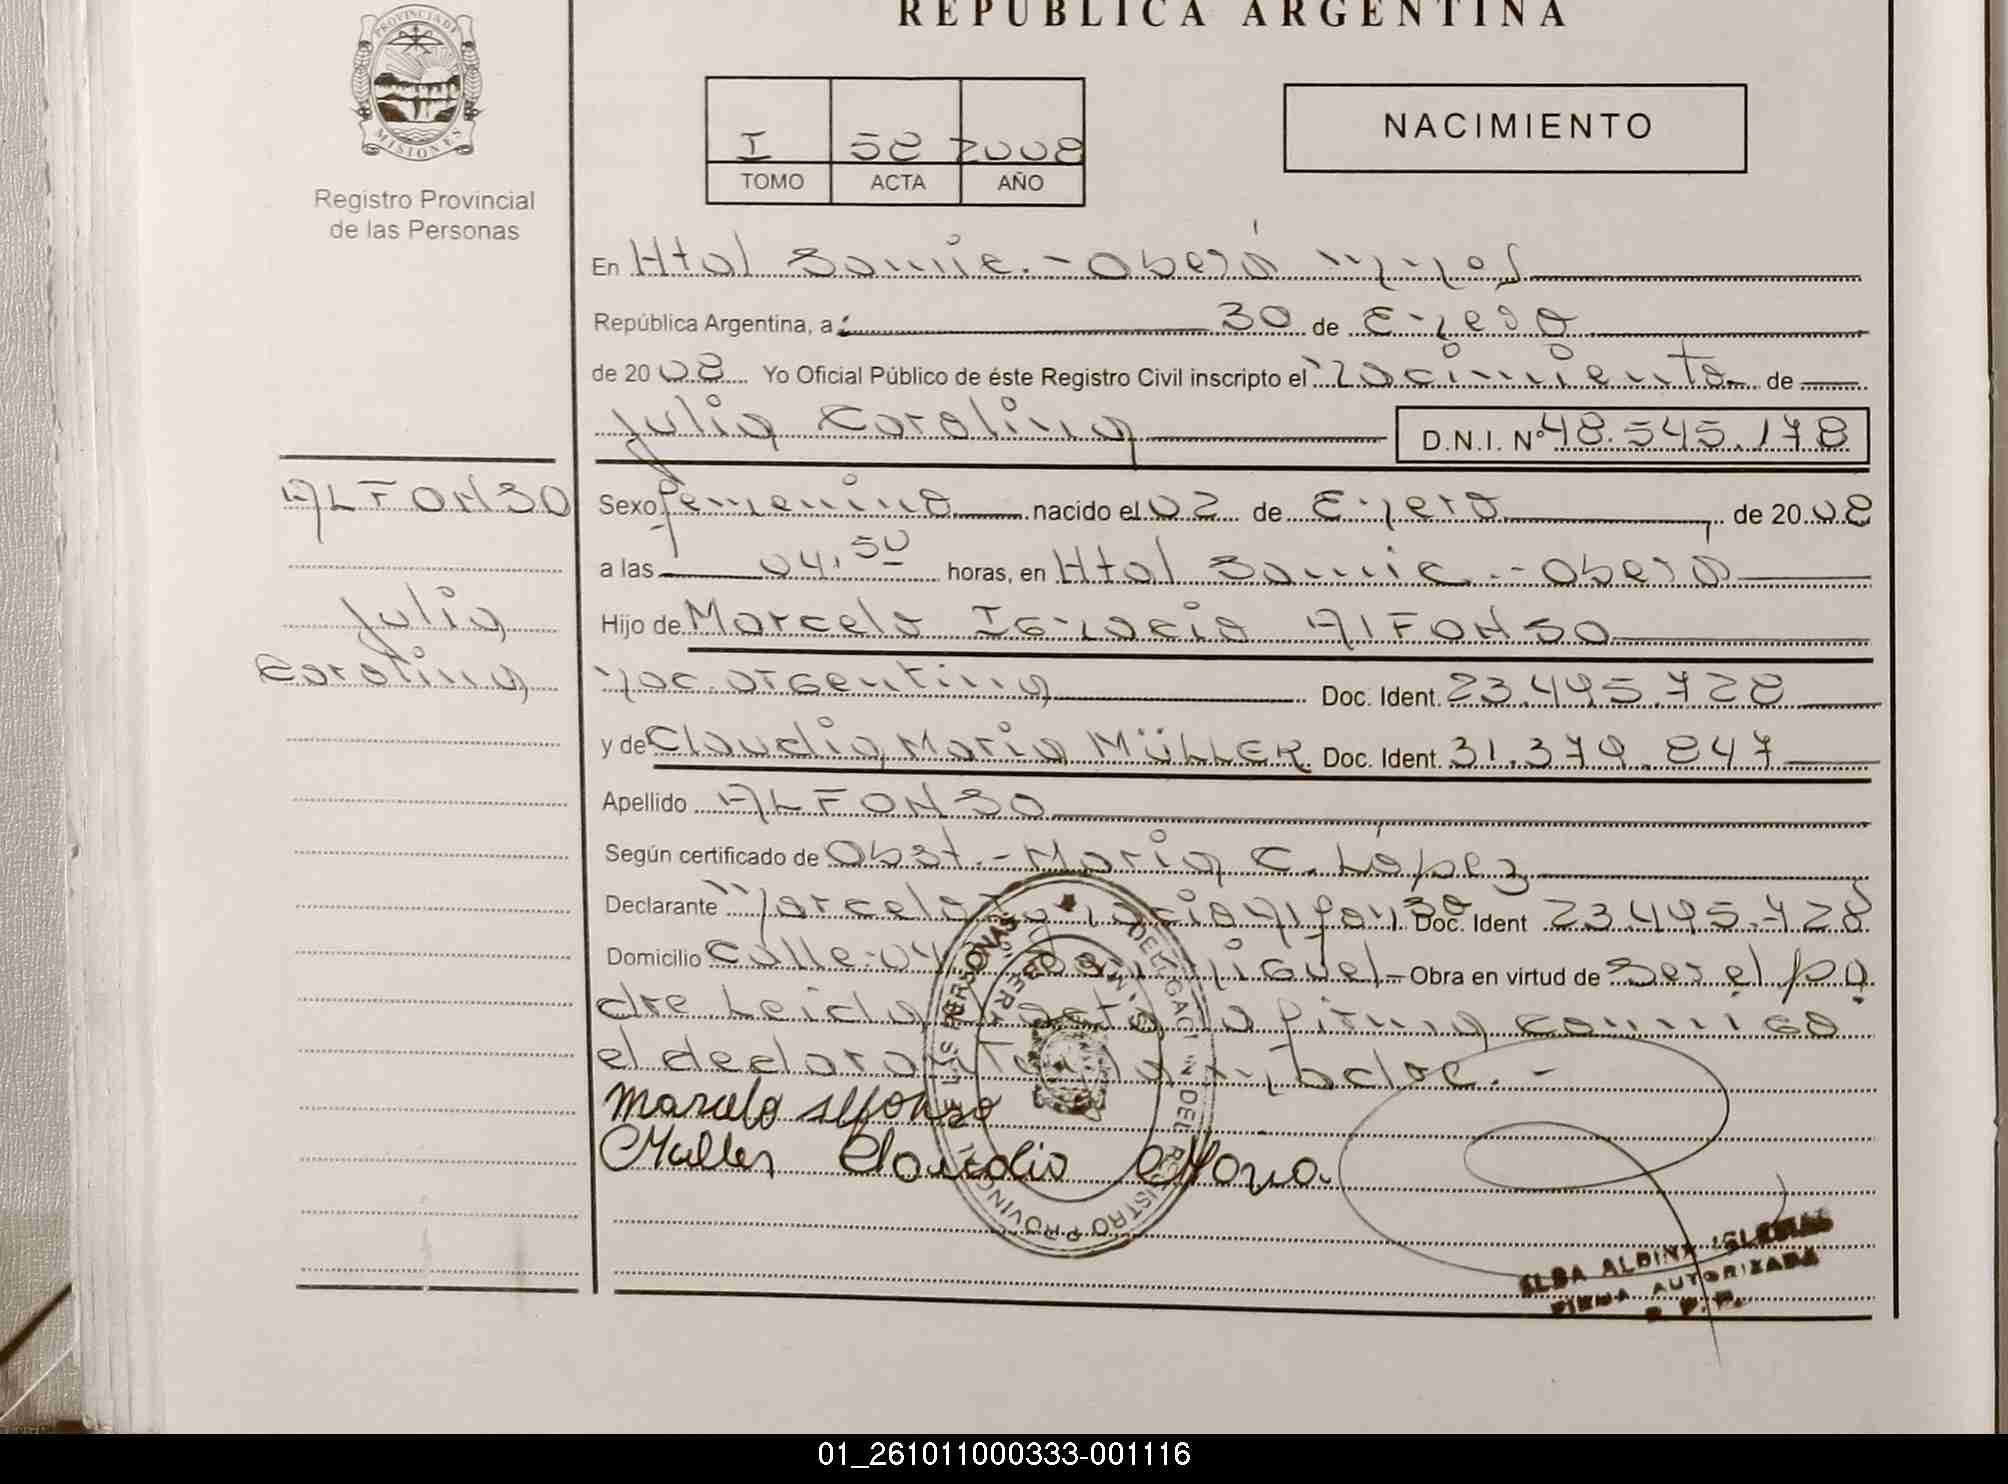 REPÚBLICA ARGENTINA
PROVINCIA DE
MISIONES
Registro Provincial
de las Personas
I 58 2008
TOMO ACTA AÑO
NACIMIENTO
En Htal Samic.- Oberá Mnes
República Argentina, a 30 de Enero
de 2008 Yo Oficial Público de éste Registro Civil inscripto el Nacimiento de
Julia Carolina D.N.I. Nº 48.545.178
ALFONSO
Julia
Carolina
Sexo femenino nacido el 02 de Enero de 2008
a las 04,50 horas, en Htal Samic.- Oberá
Hijo de Marcelo Ignacio AlFONSO
nac. argentina Doc. Ident. 23.495.728
y de Claudia Maria MÜLLER Doc. Ident. 31.379.847
Apellido ALFONSO
Según certificado de Obst.- Maria C. López
Declarante Marcelo Ignacio Alfonso Doc. Ident 23.495.728
Domicilio Calle 04 San Miguel - Obra en virtud de ser el pa
dre Leida el acta la firma conmigo
el declarante y la madre.-
Marcelo Alfonso
Muller Claudia Maria
DELEGACION DEL REGISTRO PROVINCIAL DE LAS PERSONAS
ELBA ALDINA IGLESIAS
FIRMA AUTORIZADA
R. P. P.
01_261011000333-001116